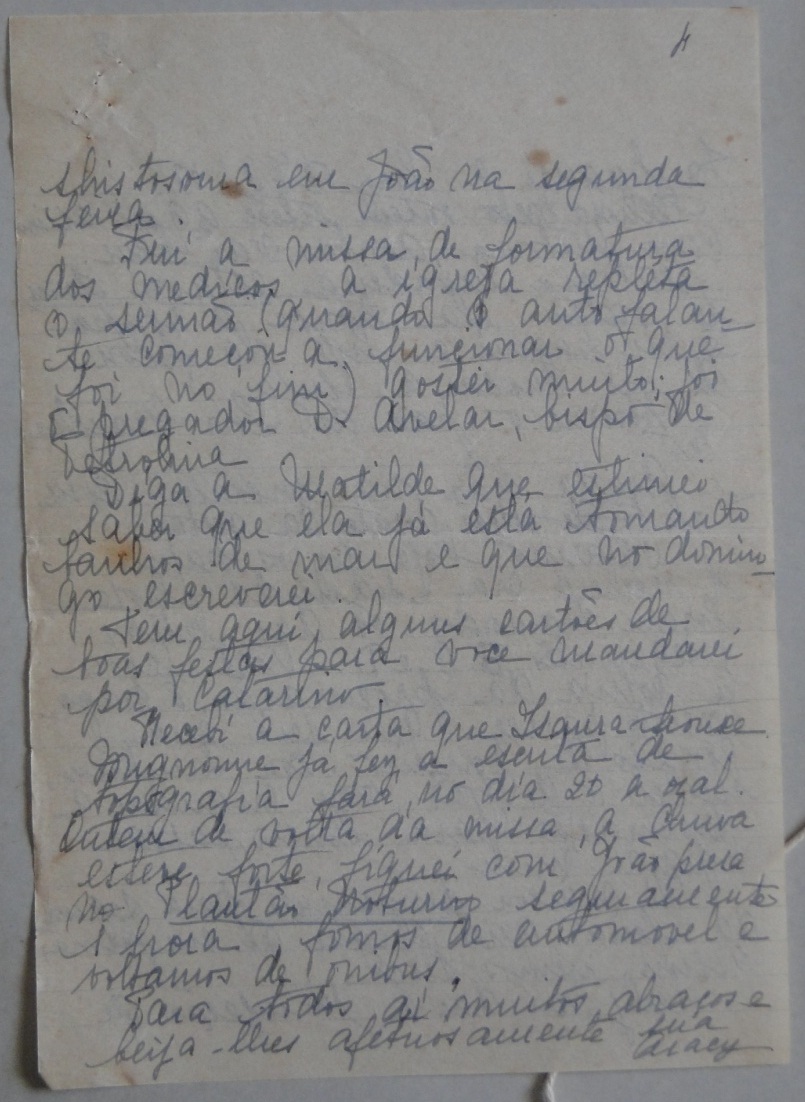 4
shistosoma em João na segunda
feira.
Fui a missa de formatura
dos medicos a igreja repleta
o sermão (quando o auto falan-
te começou a funcionar o que
foi no fim) gostei muito; foi
o pregador D. Avelar, bispo de
Petrolina
Diga a Matilde que estimei
saber que ela já está tomando
banhos de mar e que no domin-
go escreverei.
Tem aqui alguns cartões de
boas festas para voce mandarei
por Catarino.
Recebi a carta que Isaura trouxe.
já fez a escrita de
topografia fará no dia 20 a oral.
Ontem de volta da missa, a chuva
esteve forte, fiquei com João presa
no Plantão Noturno seguramente
1 hora fomos de automovel e
voltamos de onibus.
Para todos aí muitos abraços e
beija-lhes afetuosamente sua
Aracy